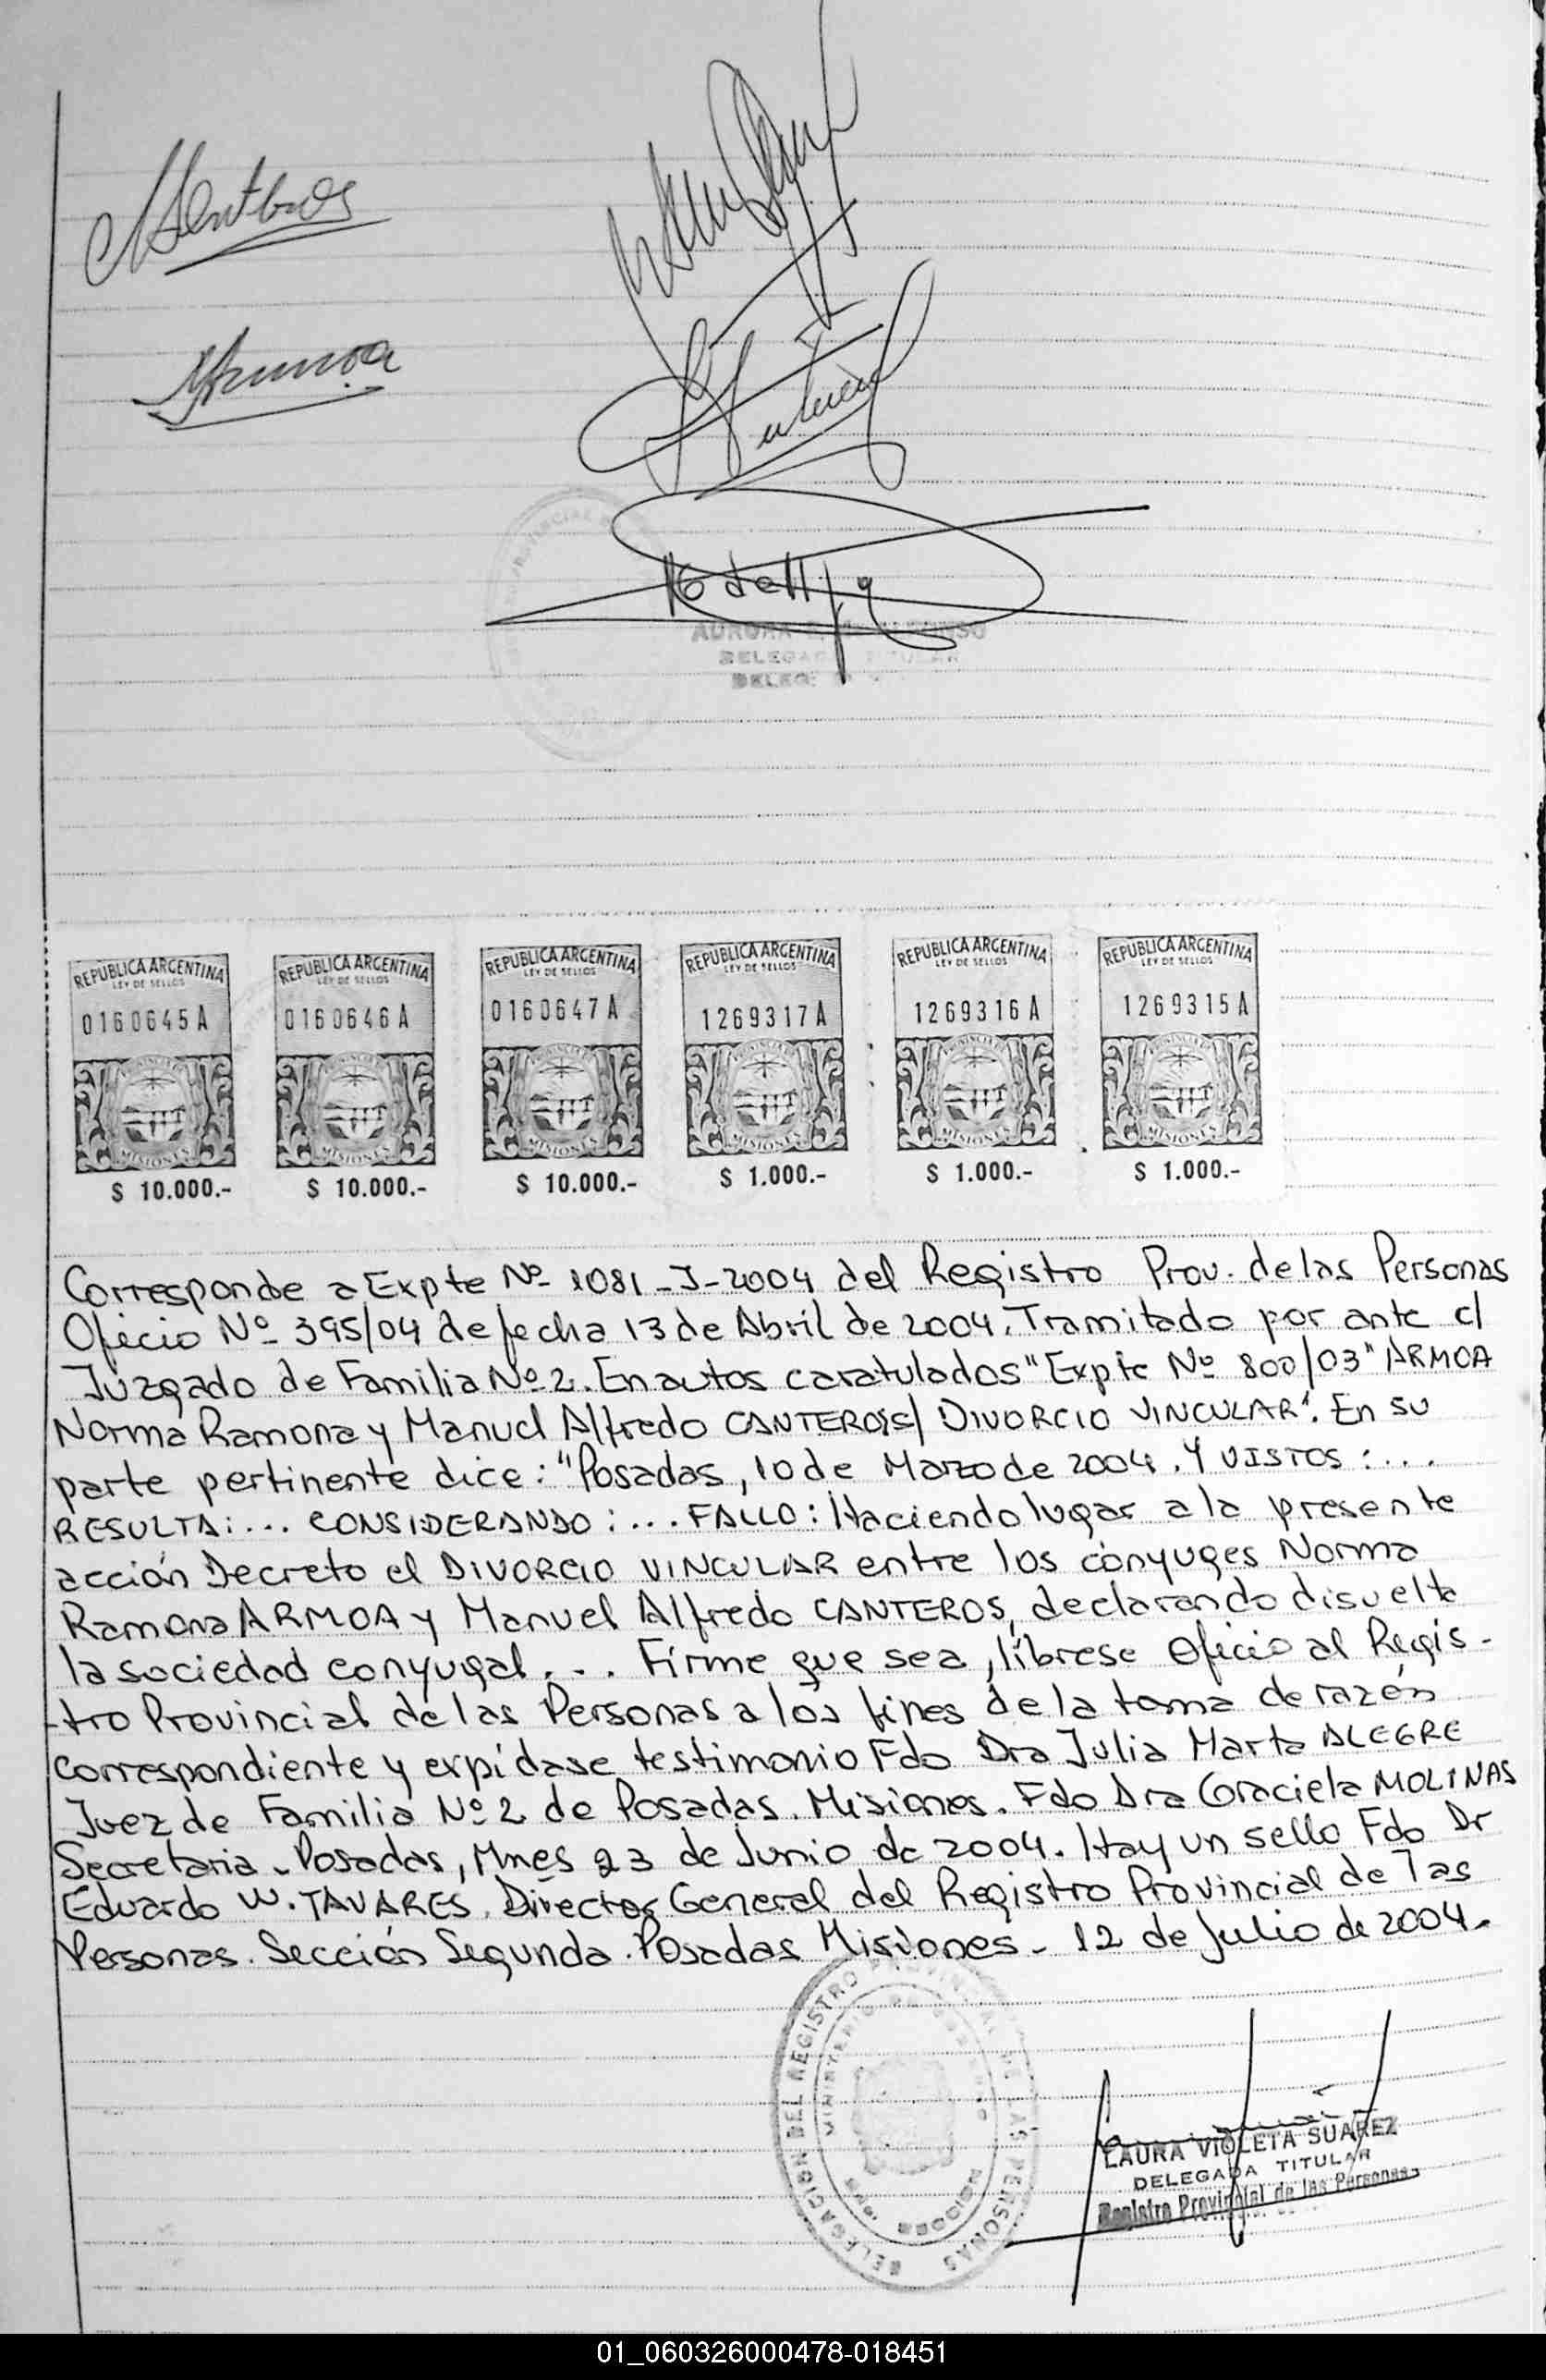 Armoa
AURORA
DELEGADA TITULAR
DELEG
REPUBLICA ARGENTINA
LEY DE SELLOS
0160645A
MISIONES
$ 10.000.-
REPUBLICA ARGENTINA
LEY DE SELLOS
0160646A
MISIONES
$ 10.000.-
REPUBLICA ARGENTINA
LEY DE SELLOS
0160647A
MISIONES
$ 10.000.-
REPUBLICA ARGENTINA
LEY DE SELLOS
1269317A
MISIONES
$ 1.000.-
REPUBLICA ARGENTINA
LEY DE SELLOS
1269316A
MISIONES
$ 1.000.-
REPUBLICA ARGENTINA
LEY DE SELLOS
1269315A
MISIONES
$ 1.000.-
Corresponde a Expte Nº 1081-J-2004 del Registro Prov. de las Personas
Oficio Nº 395/04 de fecha 13 de Abril de 2004. Tramitado por ante el
Juzgado de Familia Nº 2. En autos caratulados "Expte Nº 800/03" ARMOA
Norma Ramona y Manuel Alfredo CANTEROS s/ DIVORCIO VINCULAR". En su
parte pertinente dice: "Posadas, 10 de Marzo de 2004. Y VISTOS: ...
RESULTA: ... CONSIDERANDO: ... FALLO: Haciendo lugar a la presente
acción Decreto el DIVORCIO VINCULAR entre los cónyuges Norma
Ramona ARMOA y Manuel Alfredo CANTEROS, declarando disuelta
la sociedad conyugal. .. Firme que sea, líbrese Oficio al Regis-
-tro Provincial de las Personas a los fines de la toma de razón
correspondiente y expídase testimonio Fdo Dra Julia Marta ALEGRE
Juez de Familia Nº 2 de Posadas. Misiones. Fdo Dra Graciela MOLINAS
Secretaria - Posadas, Mnes 23 de Junio de 2004. Hay un sello Fdo Dr
Eduardo W. TAVARES. Director General del Registro Provincial de las
Personas. Sección Segunda. Posadas Misiones - 12 de Julio de 2004.
DELEGACION DEL REGISTRO PROVINCIAL DE LAS PERSONAS
MINISTERIO DE GOBIERNO
SECCION
LAURA VIOLETA SUAREZ
DELEGADA TITULAR
Registro Provincial de las Personas
01_060326000478-018451